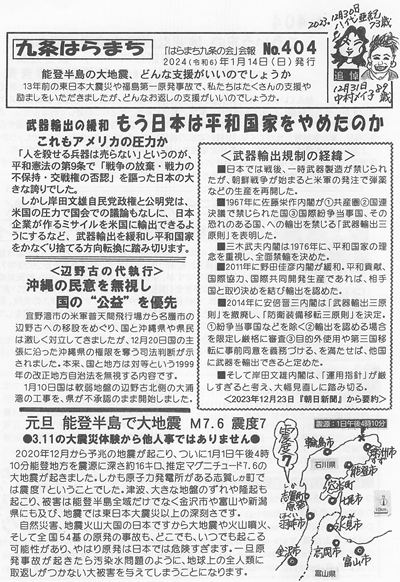 九条はらまち
「はらまち九条の会」会報 No.404
2024(令和6)年1月14日(日)発行
能登半島の大地震、どんな支援がいいのでしょうか
13年前の東日本大震災や福島第一原発事故で、私たちはたくさんの支援や
励ましをいただきましたが、どんなお返しの支援がいいのでしょうか。
2023.12月30日
八代亜紀
73歳
追悼
12月31日
中村メイ子
89歳
武器輸出の緩和 もう日本は平和国家をやめたのか
これもアメリカの圧力か
「人を殺せる兵器は売らない」というのが、
平和憲法の第9条で「戦争の放棄・戦力の
不保持・交戦権の否認」を謳った日本の大
きな誇りでした。
しかし岸田文雄自民党政権と公明党は、
米国の圧力で国会での議論もなしに、日本
企業が作るミサイルを米国に輸出できるよ
うにするなど、武器輸出を緩和し平和国家
をかなぐり捨てる方向転換に踏み切ります。
<辺野古の代執行>
沖縄の民意を無視し
国の“公益”を優先
宜野湾市の米軍普天間飛行場から名護市の
辺野古への移設をめぐり、国と沖縄県や県民
は激しく対立してきましたが、12月20日国の主
張に沿った沖縄県の権限を奪う司法判断が示
されました。本来、国と地方は対等という1999
年の改正地方自治法を無視する内容です。
1月10日国は軟弱地盤の辺野古北側の大浦
湾の工事を、県が不承認のまま強行しました。
<武器輸出規制の経緯>
■日本では戦後、一時武器製造が禁じられ
たが、朝鮮戦争が始まると米軍の発注で弾薬
などの生産を再開した。
■1967年に佐藤栄作内閣が①共産圏②国連
決議で禁じられた国③国際紛争当事国、その
恐れのある国、への輸出を禁じる「武器輸出三
原則」を表明した。
■三木武夫内閣は1976年に、平和国家の理
念を重視し、全面禁輸を決めた。
■2011年に野田佳彦内閣が緩和。平和貢献、
国際協力、国際共同開発生産であれば、相手
国と取り決めを結び輸出を認めた。
■2014年に安倍晋三内閣は「武器輸出三原
則」を撤廃し、「防衛装備移転三原則」を決定。
①紛争当事国などを除く②輸出を認める場合
を限定し厳格に審査③目的外使用や第三国移
転に事前同意を義務づける、を満たせば、他国
に武器を輸出できると定めた。
■そして岸田文雄内閣は、「運用指針」が厳
しすぎると考え、大幅見直しに踏み切る。
<2023年12月23日『朝日新聞』から要約>
元旦 能登半島で大地震 M7.6 震度7
●3.11の大震災体験から他人事ではありません●
2020年12月から予兆の地震が起こり、ついに1月1日午後4時
10分能登地方を震源に深さ約16キロ、推定マグニチュード7.6の
大地震が起きました。しかも原子力発電所がある志賀しか町で
は震度7ということでした。津波、大きな地盤のずれや隆起も
起こり、被害は能登半島全域だけでなく金沢市や富山や新潟
県にも及び、地震では東日本大震災以上の深刻さです。
自然災害、地震火山大国の日本ですから大地震や火山噴火、
そして全国54基の原発の事故も、どこでも、いつでも起こる
可能性があり、やはり原発は日本では危険すぎます。一旦原
発事故が起きたら汚染水問題のように、地球上の全人類に
取り返しがつかない大被害を与えてしまうことになります。
震源:1日午後4時10分
震度7
輪島市
珠洲市
石川県
能登町
穴水町
志賀町
七尾市
羽咋市
氷見市
金沢市
高岡市
富山市
富山県